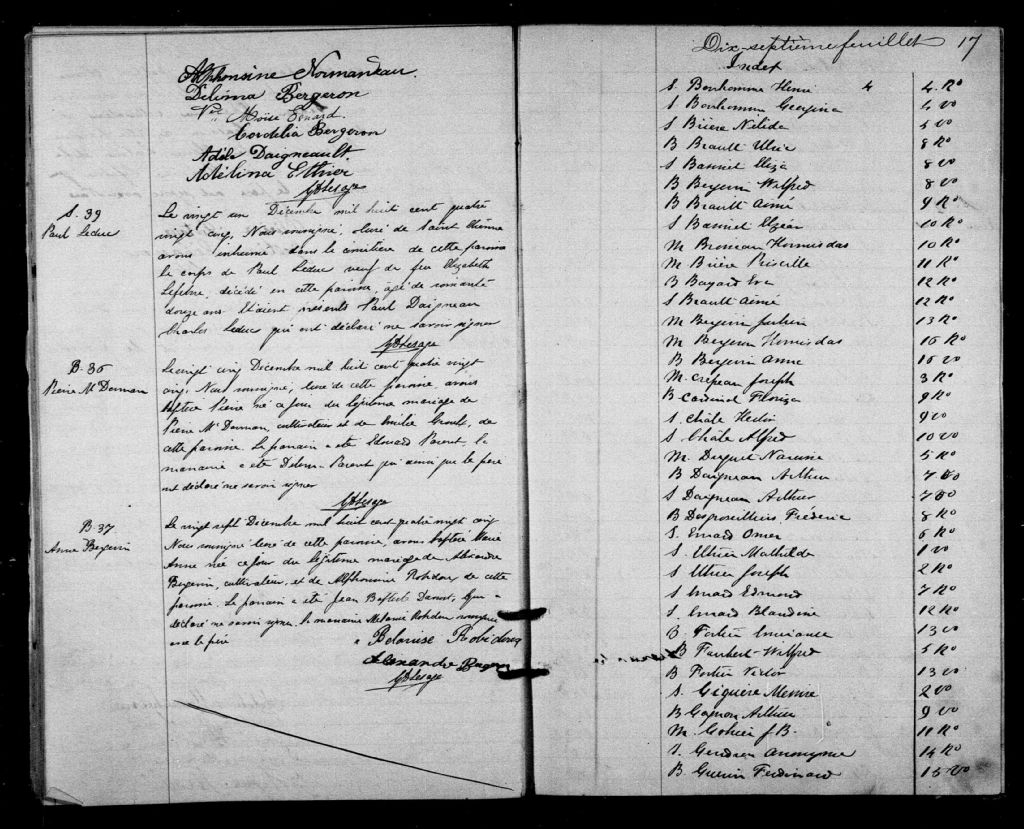 Alphonsine Normandeau
Delima Bergeron
Moïse Emard
Cordelia Bergeron
Adèle Daigneault
Adélina Ethier
S. 39
Paul Leduc
Le vingt un Décembre mil huit cent quatre
vingt cinq, Nous soussigné, curé de Saint Etienne
avons inhumé dans le cimetière de cette paroisse
le corps de Paul Leduc veuf de feu Elizabeth
Lefebvre, décédé en cette paroisse, âgé de soixante
douze ans. Etaient présents Paul Daigneau
Charles Leduc qui ont déclaré ne savoir signer
B. 36
Pierre McDornan
Le vingt cinq Décembre mil huit cent quatre vingt
cinq, Nous soussigné, curé de cette paroisse, avons
baptisé Pierre né ce jour du légitime mariage de
Pierre McDornan, cultivateur et de Emilie Groulx, de
cette paroisse. Le parrain a été Edouard Parent, la
marraine a été Parent qui ainsi que le père
ont déclaré ne savoir signer
B. 37
Anne Bergevin
Le vingt sept Décembre mil huit cent quatre vingt cinq
Nous soussigné curé de cette paroisse, avons baptisé Marie
Anne née ce jour du légitime mariage de Alexandre
Bergevin, cultivateur, et de Alphonsine Robidoux de cette
paroisse. Le parrain a été Jean Baptiste qui a
déclaré ne savoir signer, la marraine Robidoux soussignée
avec le père
Robidoux
Alexandre
Dix-septième feuillet 17
Index
S Bonhomme Henri 4 4 Ro
S Bonhomme Georgina 4 vo
S Brière Nélida 5 vo
B Brault Ulric 8 Ro
S Eliza 8 vo
B Bergevin Wilfred 8 vo
B Brault Aimé 9 Ro
S Elzéar 10 Ro
M Hormisdas 10 Ro
M Brière Priscille 11 Ro
B Bayard Eva 12 Ro
S Brault Aimé 12 Ro
M Bergevin 13 Ro
M Bergeron Hormisdas 16 Ro
B Bergevin Anne 16 vo
M. Crépeau Joseph 3 Ro
B Cardinal Floriza 9 Ro
S. Chate 9 vo
S Chate Alfred 10 vo
M. Narcisse 5 Ro
B Daigneau Arthur 7 vo
S Daigneau Arthur 7 vo
B Desgroseilliers, Fréderic 8 Ro
S. Emard Omer 6 Ro
S. Ethier Mathilde 1 vo
S Ethier Joseph 2 Ro
S. Emard Edmond 7 Ro
S. Emard Blandine 12 Ro
B. Fortier 13 vo
B Faubert Wilfred 5 Ro
B Fortier Victor 13 vo
S. Giguère 2 vo
B Gagnon Arthur 9 vo
M. Gohier J B. 11 Ro
S. Gendron Anonyme 14 Ro
B Guérin Ferdinand 15 vo